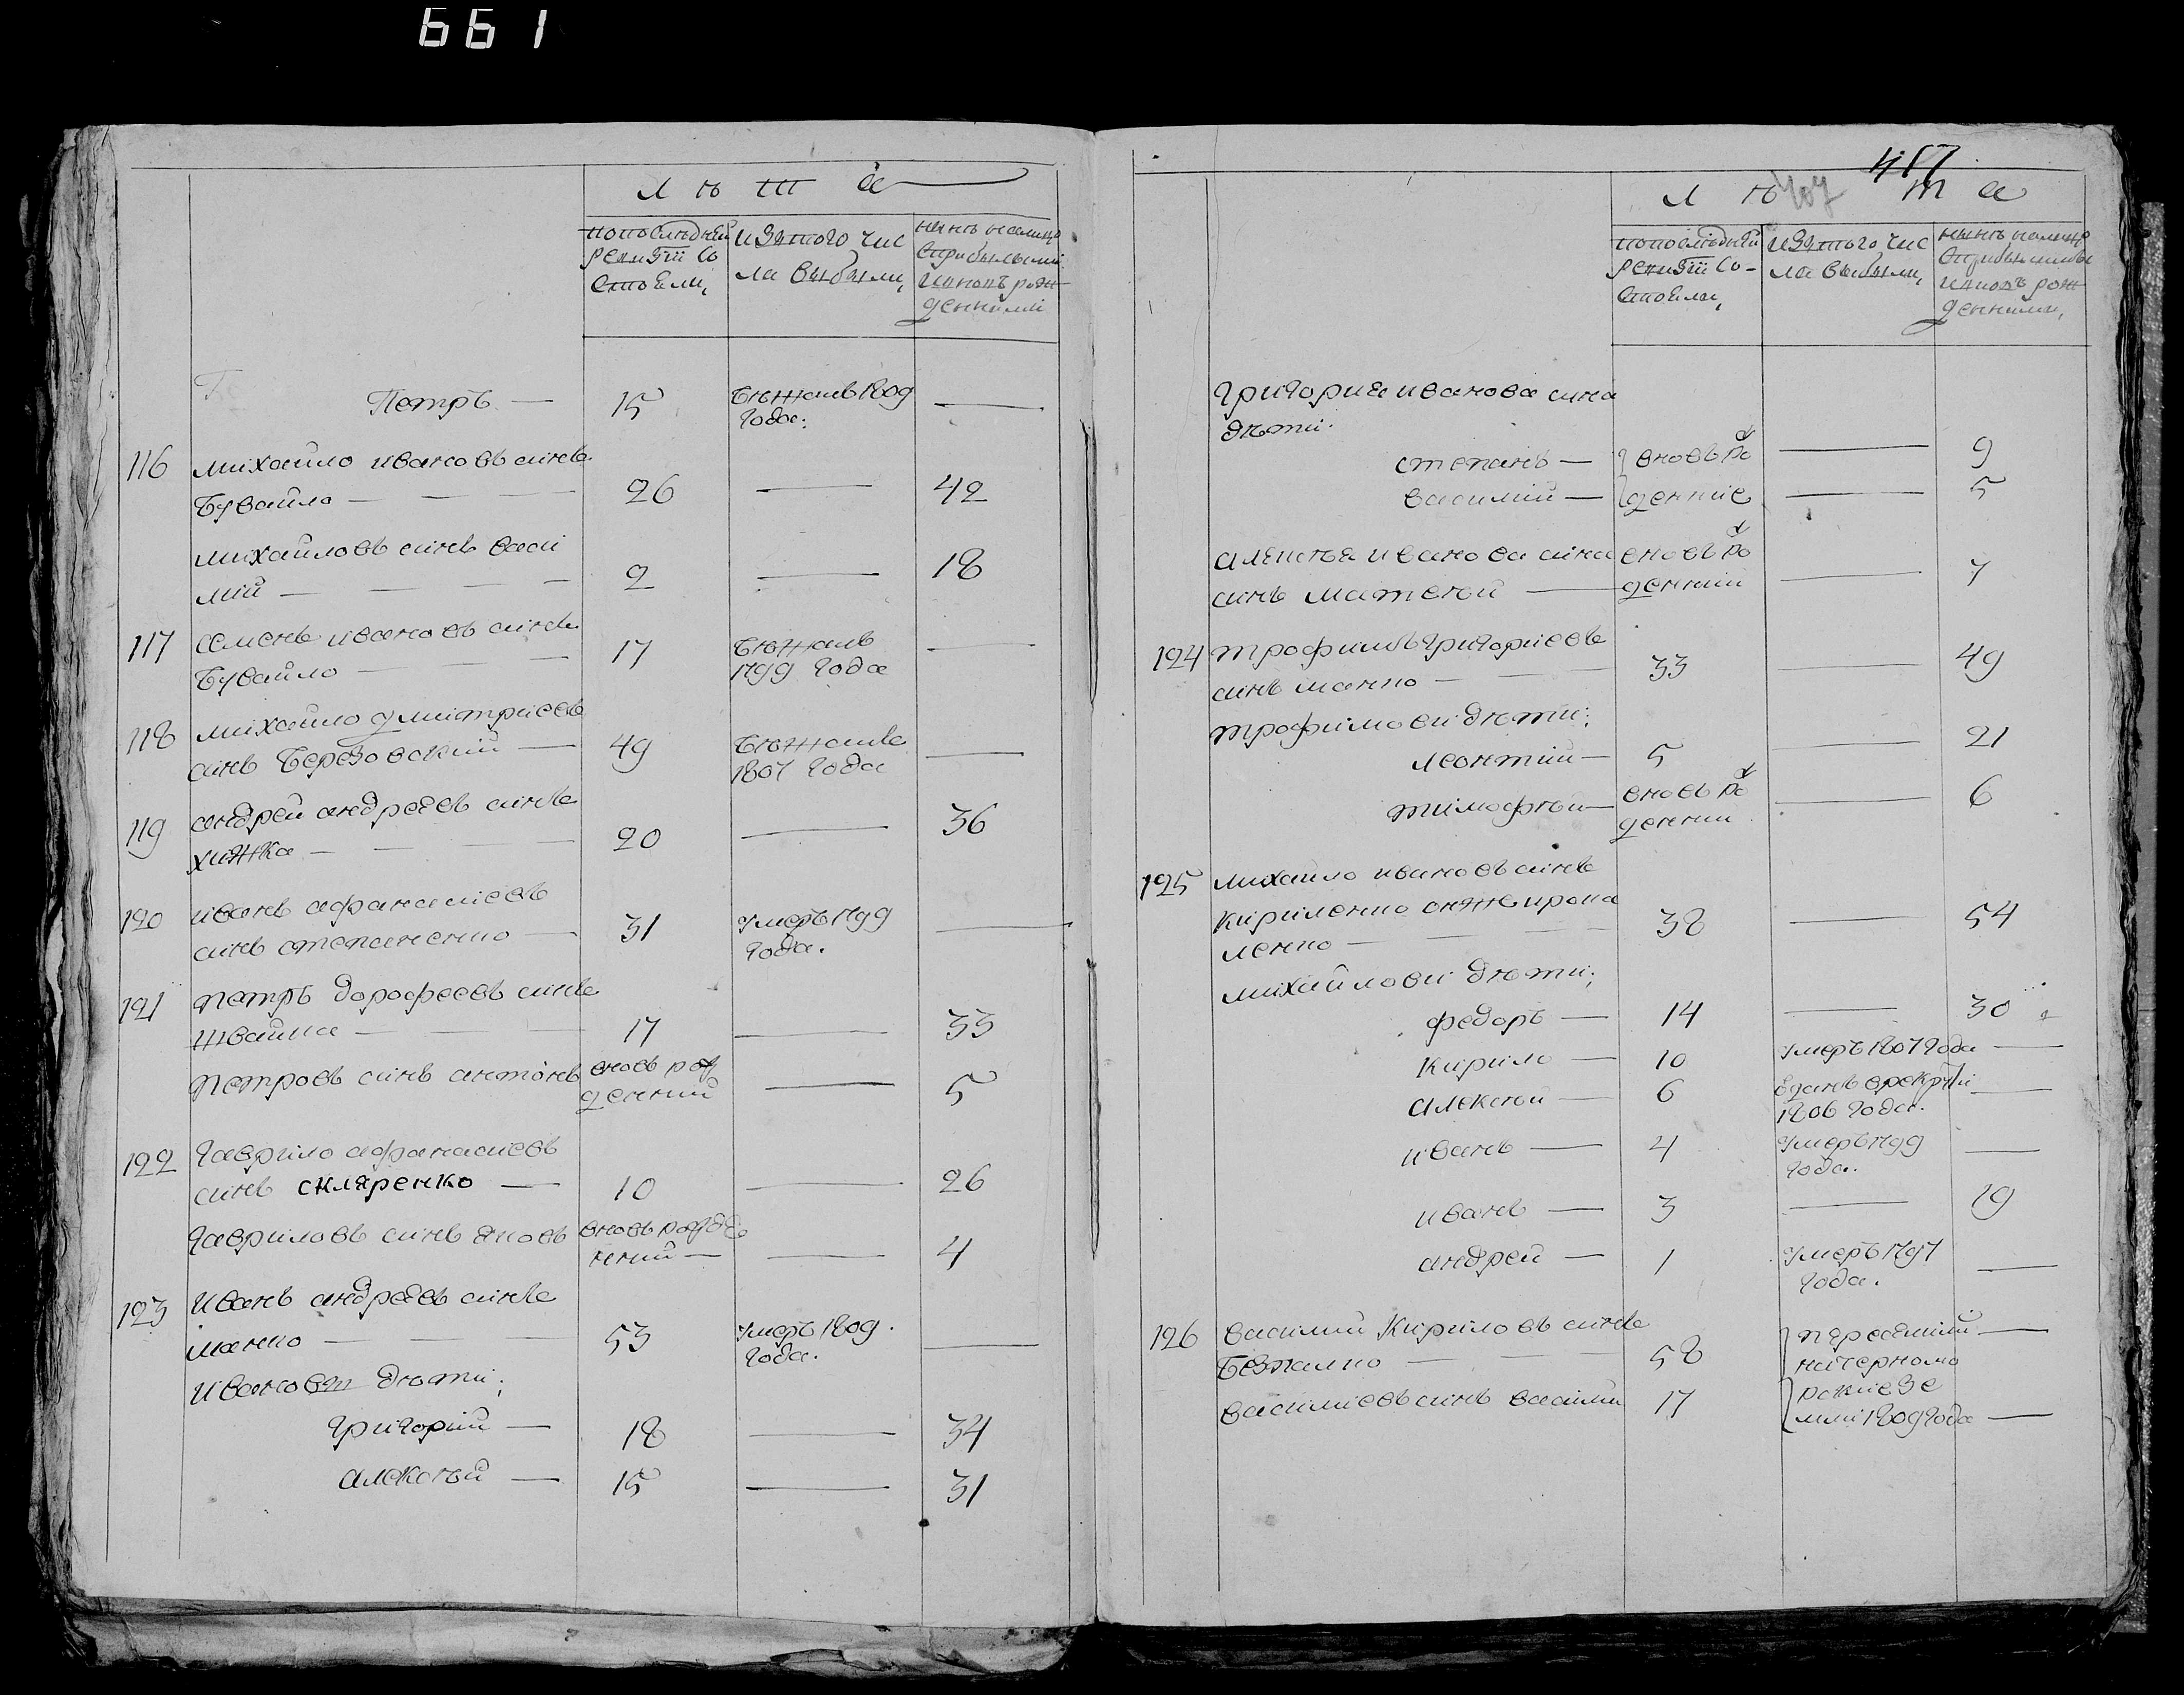 661
Лѣта
попослѣдней ревизіи состояли,
изътого числа выбыли,
нынѣ налицо съприбылыми ипновь рожденними
Петръ — 15 бѣжалъ 1809 —
года:
116 михайло ивановъ синъ
Бувайло — 26 — 42
михайловъ синъ васи
лій — 2 — 18
117 семенъ ивановъ синъ бѣжалъ
Бувайло — 17 1799 года —
118 михайло дмитриевъ
синъ Березовский — 49 бѣжалъ —
1807 года
119 андрей андреевъ синъ
хижка — 20 — 36
120 иванъ афанасиевъ
синъ степаненко — 31 умеръ 1799 —
года.
121 петръ дорофеевъ синъ
швайка — 17 — 33
петровъ синъ антонъ вновь рож
денний — 5
122 гаврило афанасиевъ
синъ скляренко — 10 — 26
гавриловъ синъ яковъ вновь рожде
нний — — 4
123 Иванъ андреевъ синъ
манко — 53 умеръ 1809. —
года.
Ивановы дѣти;
григорий — 18 — 34
алексѣй — 15 — 31
457
407
Лѣта
попослѣдней ревизіи состояли,
изътого числа выбыли,
нынѣ налицо съприбылыми ипновь рожденними,
григория иванова сина
дѣти:
степанъ — вновь ро — 9
василий — жденние — 5
алексѣя иванова сина вновь рож
синъ матвѣй — денний — 7
124 трофимъ григориевъ
синъ манко — 33 — 49
трофимови дѣти;
леонтий — 5 — 21
тимофѣй — вновь рож — 6
денний
125 михайло ивановъ синъ
кириленко онже ирона
ленко — 38 — 54
михайлови дѣти;
федоръ — 14 — 30
кирило — 10 умеръ 1807 года —
алексѣй — 6 вданъ врекрути —
1806 года.
иванъ — 4 умеръ 1799 —
года.
иванъ — 3 — 19
андрей — 1 умеръ 1797 —
года.
126 василий Кириловъ синъ
Безпалко — 58 переселини —
начерномо
василиевъ синъ василий 17 рские зе
мли 1809 года —